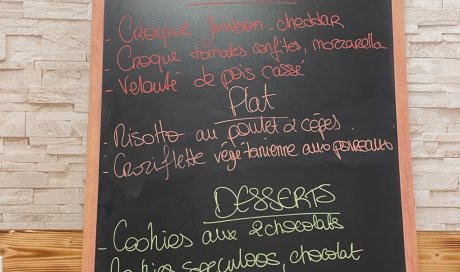 - Croque Jambon - cheddar
- Croque tomates confites, mozzarella
- Velouté de pois cassé
Plat
- Risotto au poulet & cèpes.
- Croziflette végétarienne aux poireaux
DESSERTS
- Cookies aux 2 chocolats
- Cookies speculoos, chocolat